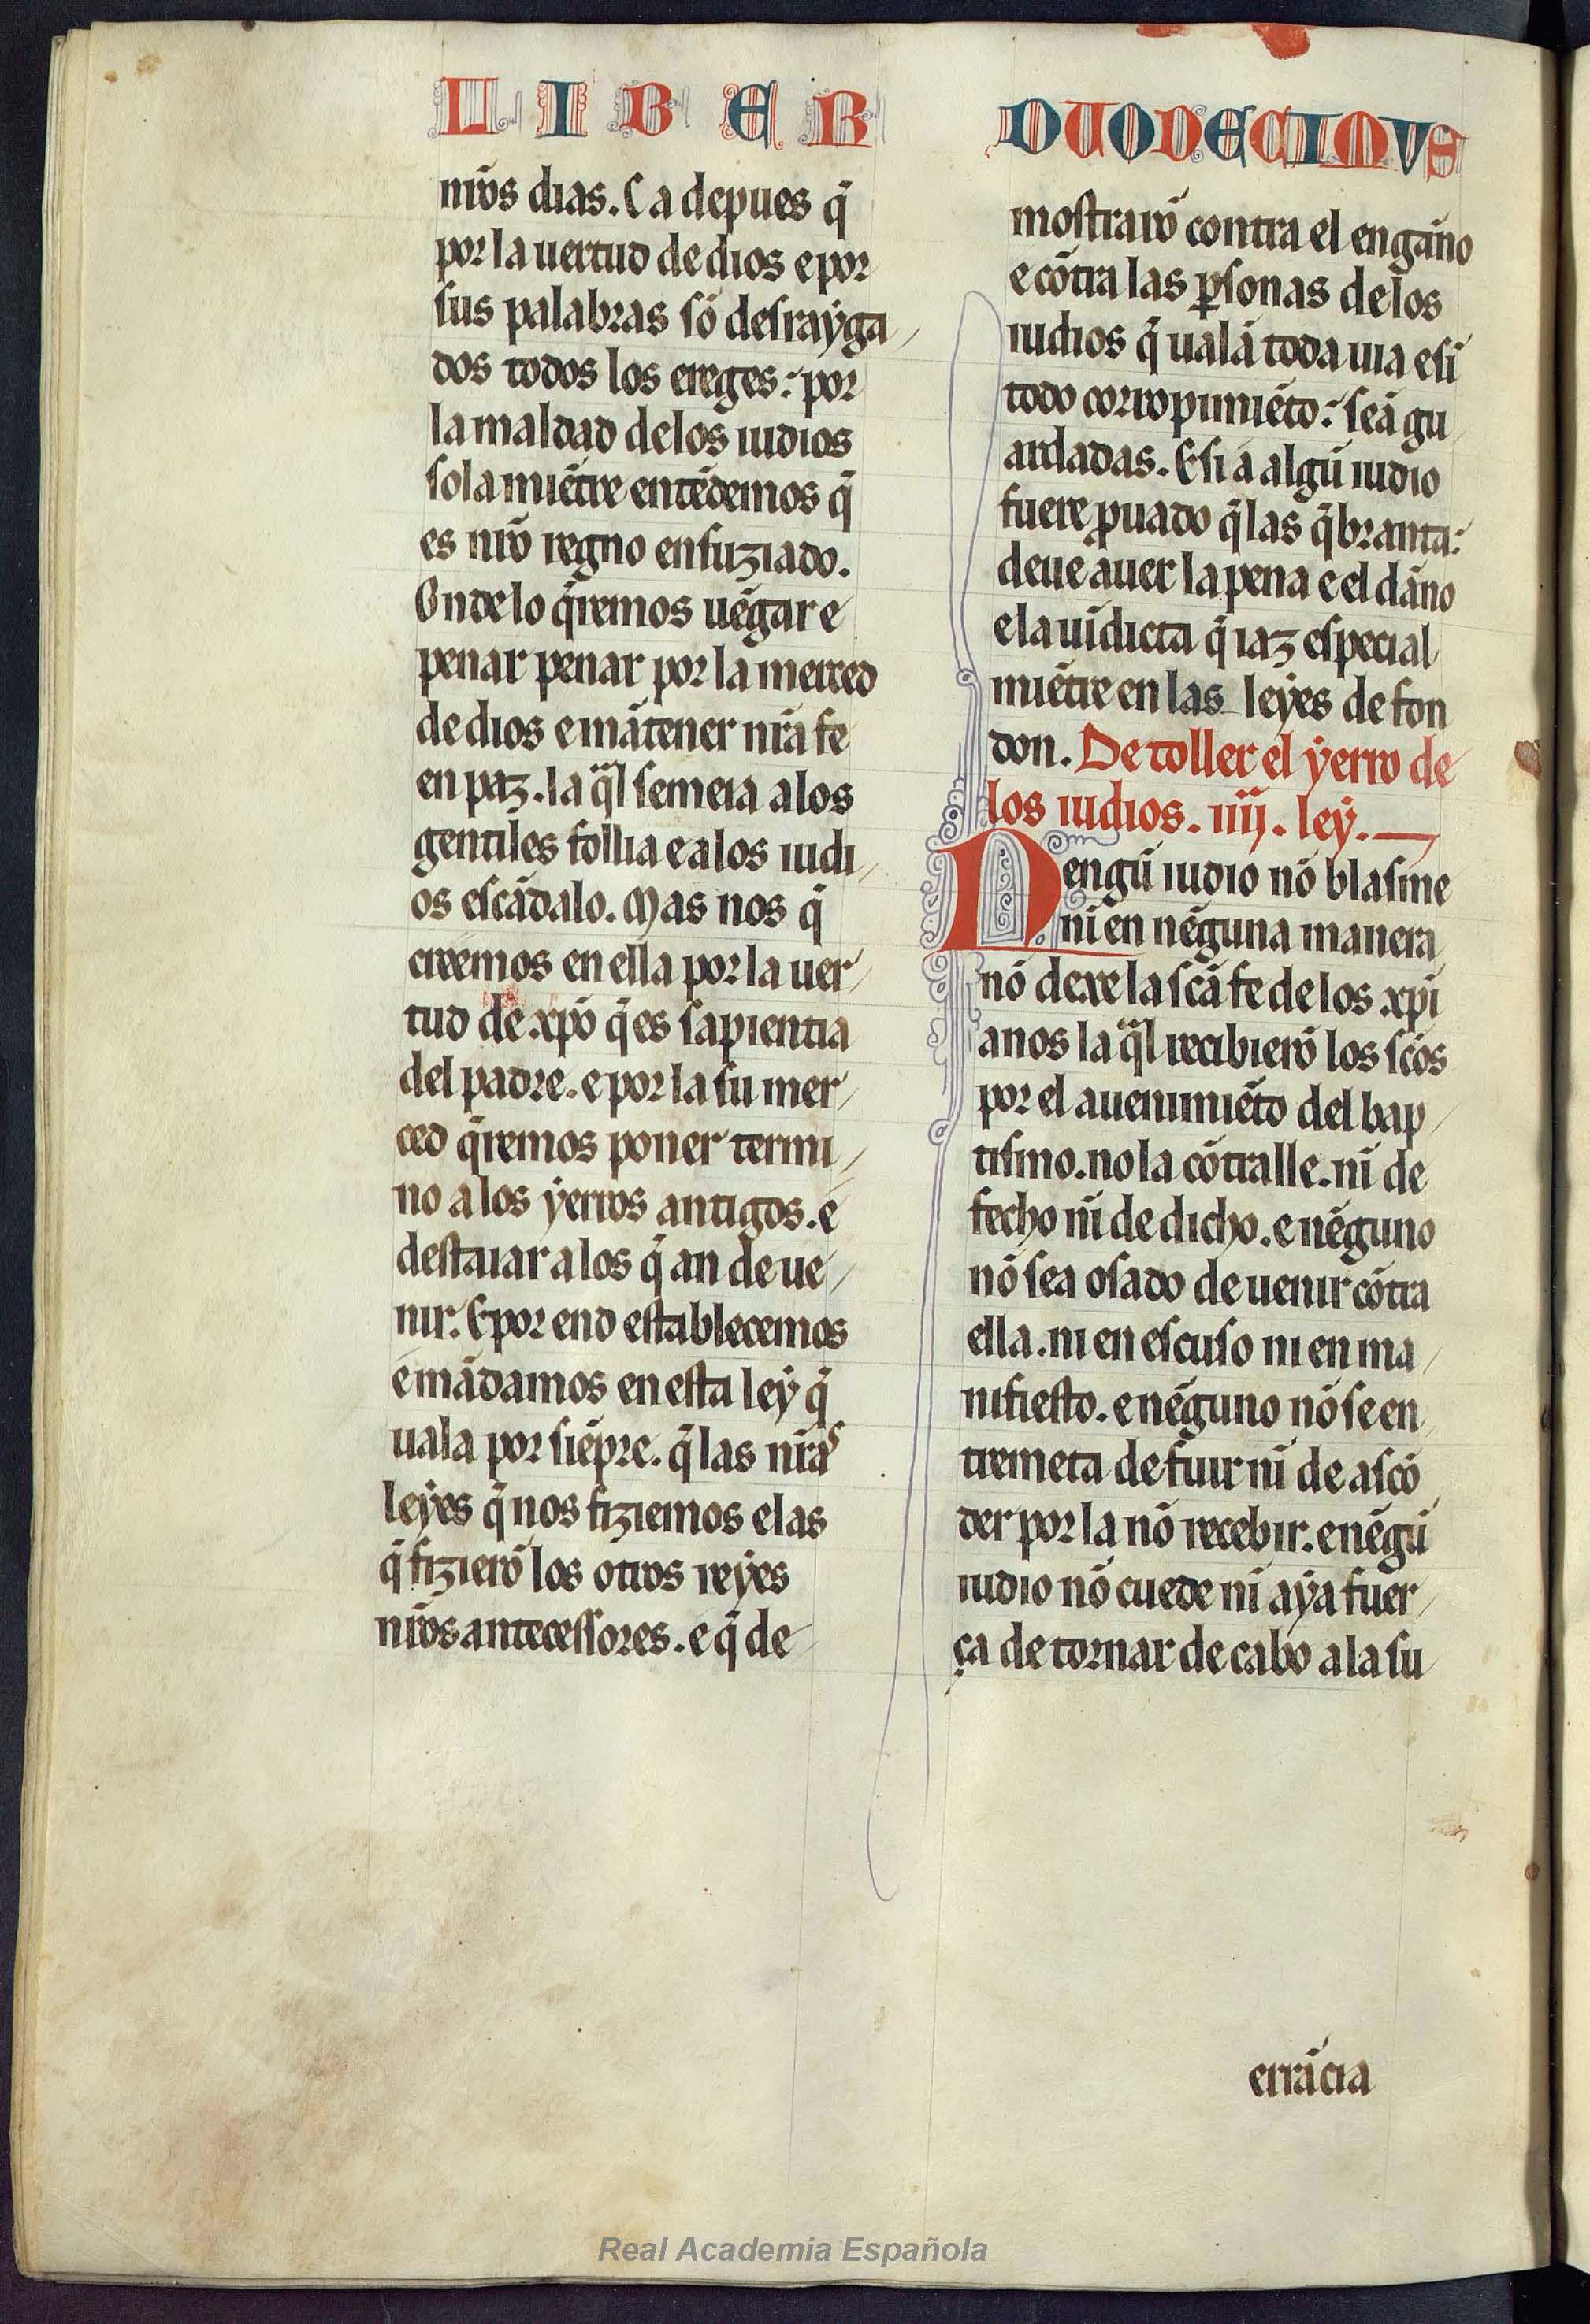 LIBER
DUODECIMVS
nr̄os dias. Ca depues q̄
por la uertud de dios e por
sus palabras sō desraẏga
dos todos los ereges: por
la maldad delos iudios
sola miētre entēdemos q̄
es nr̄o regno ensuziado.
Onde lo q̄remos uēgar e
penar penar por la merced
de dios e mātener nr̄a fe
en paz. la q̄l semeia alos
gentiles follia e alos iudi
os escādalo. Mas nos q̄
creemos en ella por la uer
tud de xp̄o q̄ es sapientia
del padre. e por la su mer
ced q̄remos poner termi
no a los ẏerros antigos. e
destaiar a los q̄ an de ue
nir. E por end establecemos
e mādamos en esta leẏ q̄
uala por siēpre. q̄ las nr̄as
leẏes q̄ nos fiziemos e las
q̄ fizierō los otros reẏes
nr̄os antecessores. e q̄ de
mostrarō contra el engāno
e cōtra las ꝑsonas de los
iudios q̄ ualā toda uia e sī
todo corropimiēto: seā gu
ardadas. E si a algū iudio
fuere ꝓuado q̄ las q̄branta:
deue auer la pena e el dāno
e la uīdicta q̄ iaz especial
miētre en las leẏes de fon
don. De toller el ẏerro de
los iudios. iiij. leẏ.
Nengū iudio nō blasme
nī en nēguna manera
nō dexe la sc̄a fe de los xp̄i
anos la q̄l recibierō los sc̄os
por el auenimiēto del bap
tismo. no la cōtralle. nī de
fecho nī de dicho. e nēguno
nō sea osado de uenir cōtra
ella. ni en escuso ni en ma
nifiesto. e nēguno nō se en
tremeta de fuir nī de ascō
der por la nō recebir. e nēgū
iudio nō cuede nī aẏa fuer
ça de tornar de cabo a la su
errācia
Real Academia Española